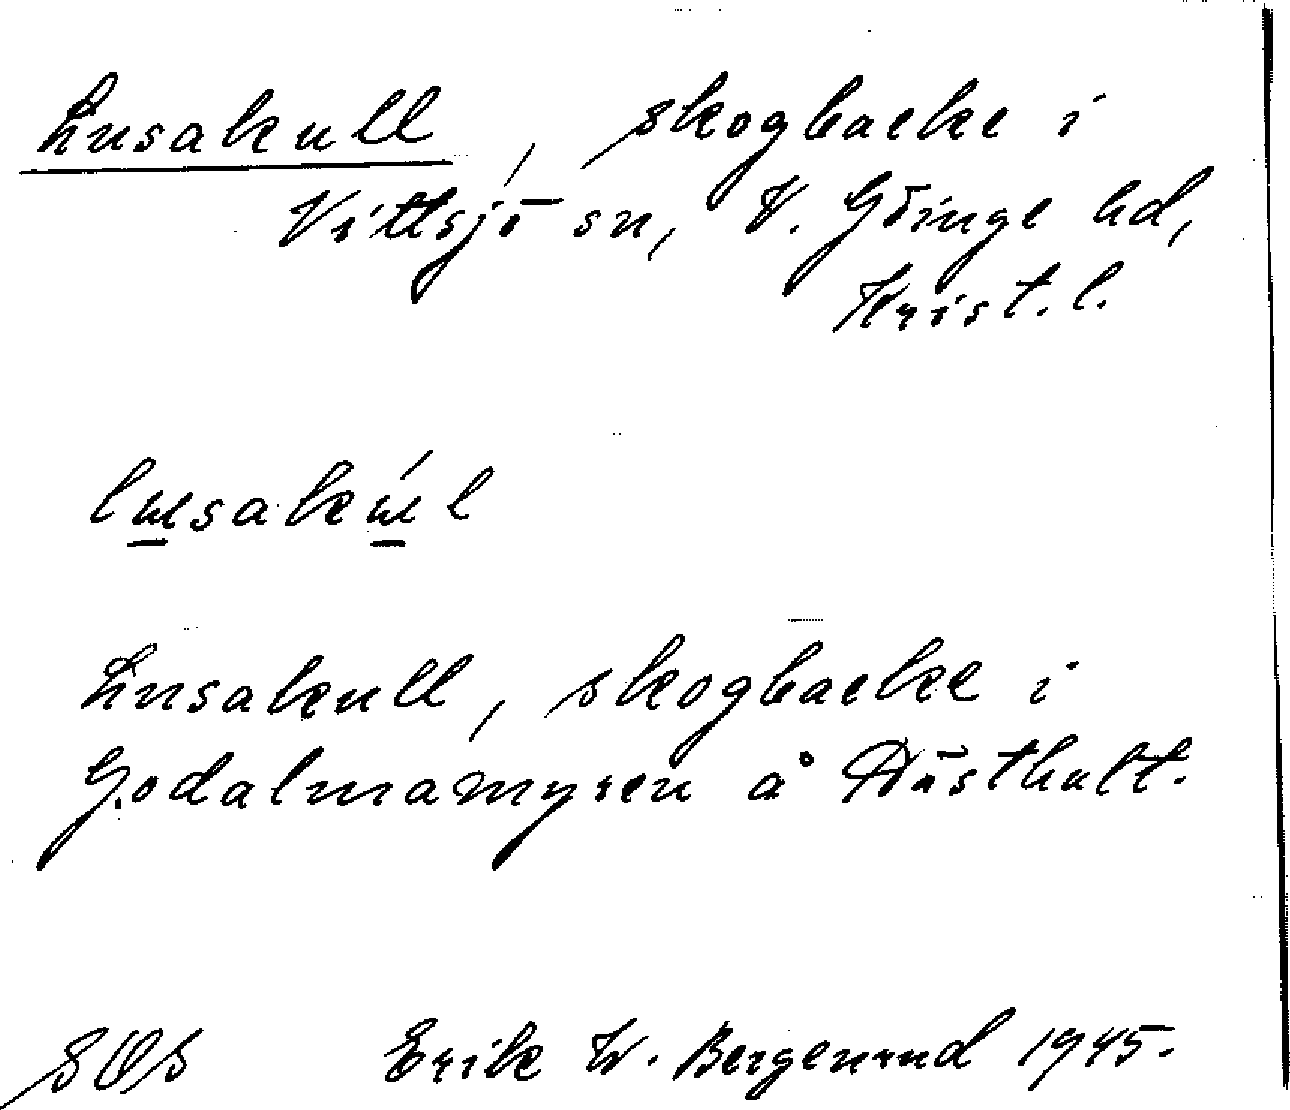 Lusakull, skogbacke i
Vittsjö sn, V. Göinge hd,
Krist. l.
lusakúl
Lusakull, skogbacke i
Godalmamyren å Döshult.
SOS Erik W. Bergenrud 1945.